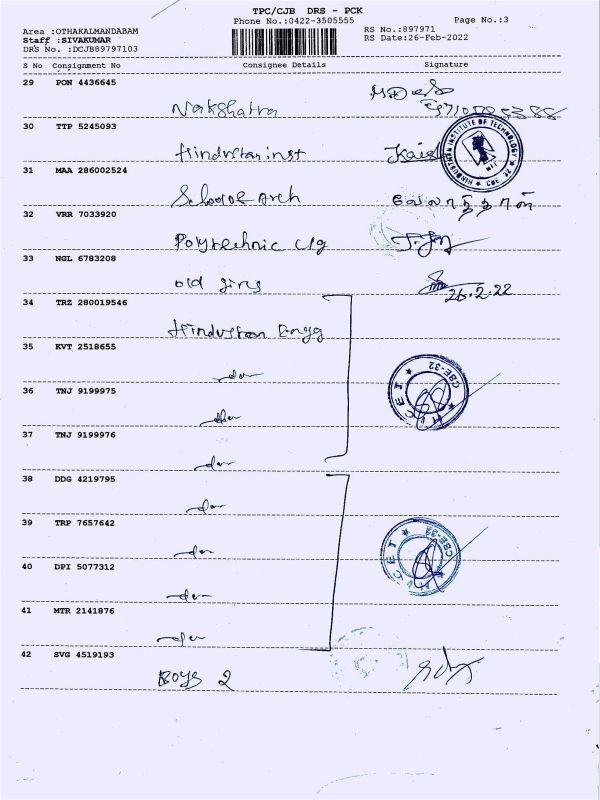 TPC/CJB DRS - PCK
Phone No.:0422-3505555
Page No.:3
Area :OTHAKALMANDABAM
RS No.:897971
Staff :SIVAKUMAR
RS Date:26-Feb-2022
DRS No. :DCJB89797103
S No Consignment No Consignee Details Signature
29 PON 4436645
Nakshatra
30 TTP 5245093
Hindustan inst
HINDUSTHAN INSTITUTE OF TECHNOLOGY
CBE-32
31 MAA 286002524
School of Arch
வேலாத்தாள்
32 VRR 7033920
Polytechnic clg
33 NGL 6783208
old girls
26.2.22
34 TRZ 280019546
Hindustan Engg
35 KVT 2518655
36 TNJ 9199975
HICET CBE-32
37 TNJ 9199976
38 DDG 4219795
39 TRP 7657642
HICET CBE-32
40 DPI 5077312
41 MTR 2141876
42 SVG 4519193
Boys 2